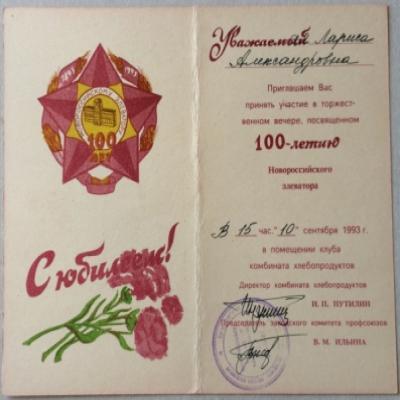 1893 1993
НОВОРОССИЙСКОМУ ЭЛЕВАТОРУ
100
ЛЕТ
С юбилеем!
Уважаемый ая Лариса
Александровна
Приглашаем Вас
принять участие в торжест-
венном вечере, посвященном
100-летию
Новороссийского
элеватора
В 15 час. "10" сентября 1993 г.
в помещении клуба
комбината хлебопродуктов
Директор комбината хлебопродуктов
И. П. ПУТИЛИН
Председатель заводского комитета профсоюзов
В. М. ИЛЬИНА